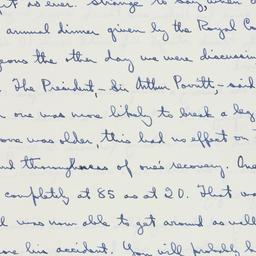 as ever. Strange to say, when a
annual dinner given by the Royal Co
eons the other day we were discussin
The President, - Sir Arthur Porritt, - said
one was more likely to break a leg
one was older, this had no effect on
nd thoroughness of one's recovery. One
completly at 85 as at 20. That wa
I was now able to get around as well
ore his accident. You will probably b